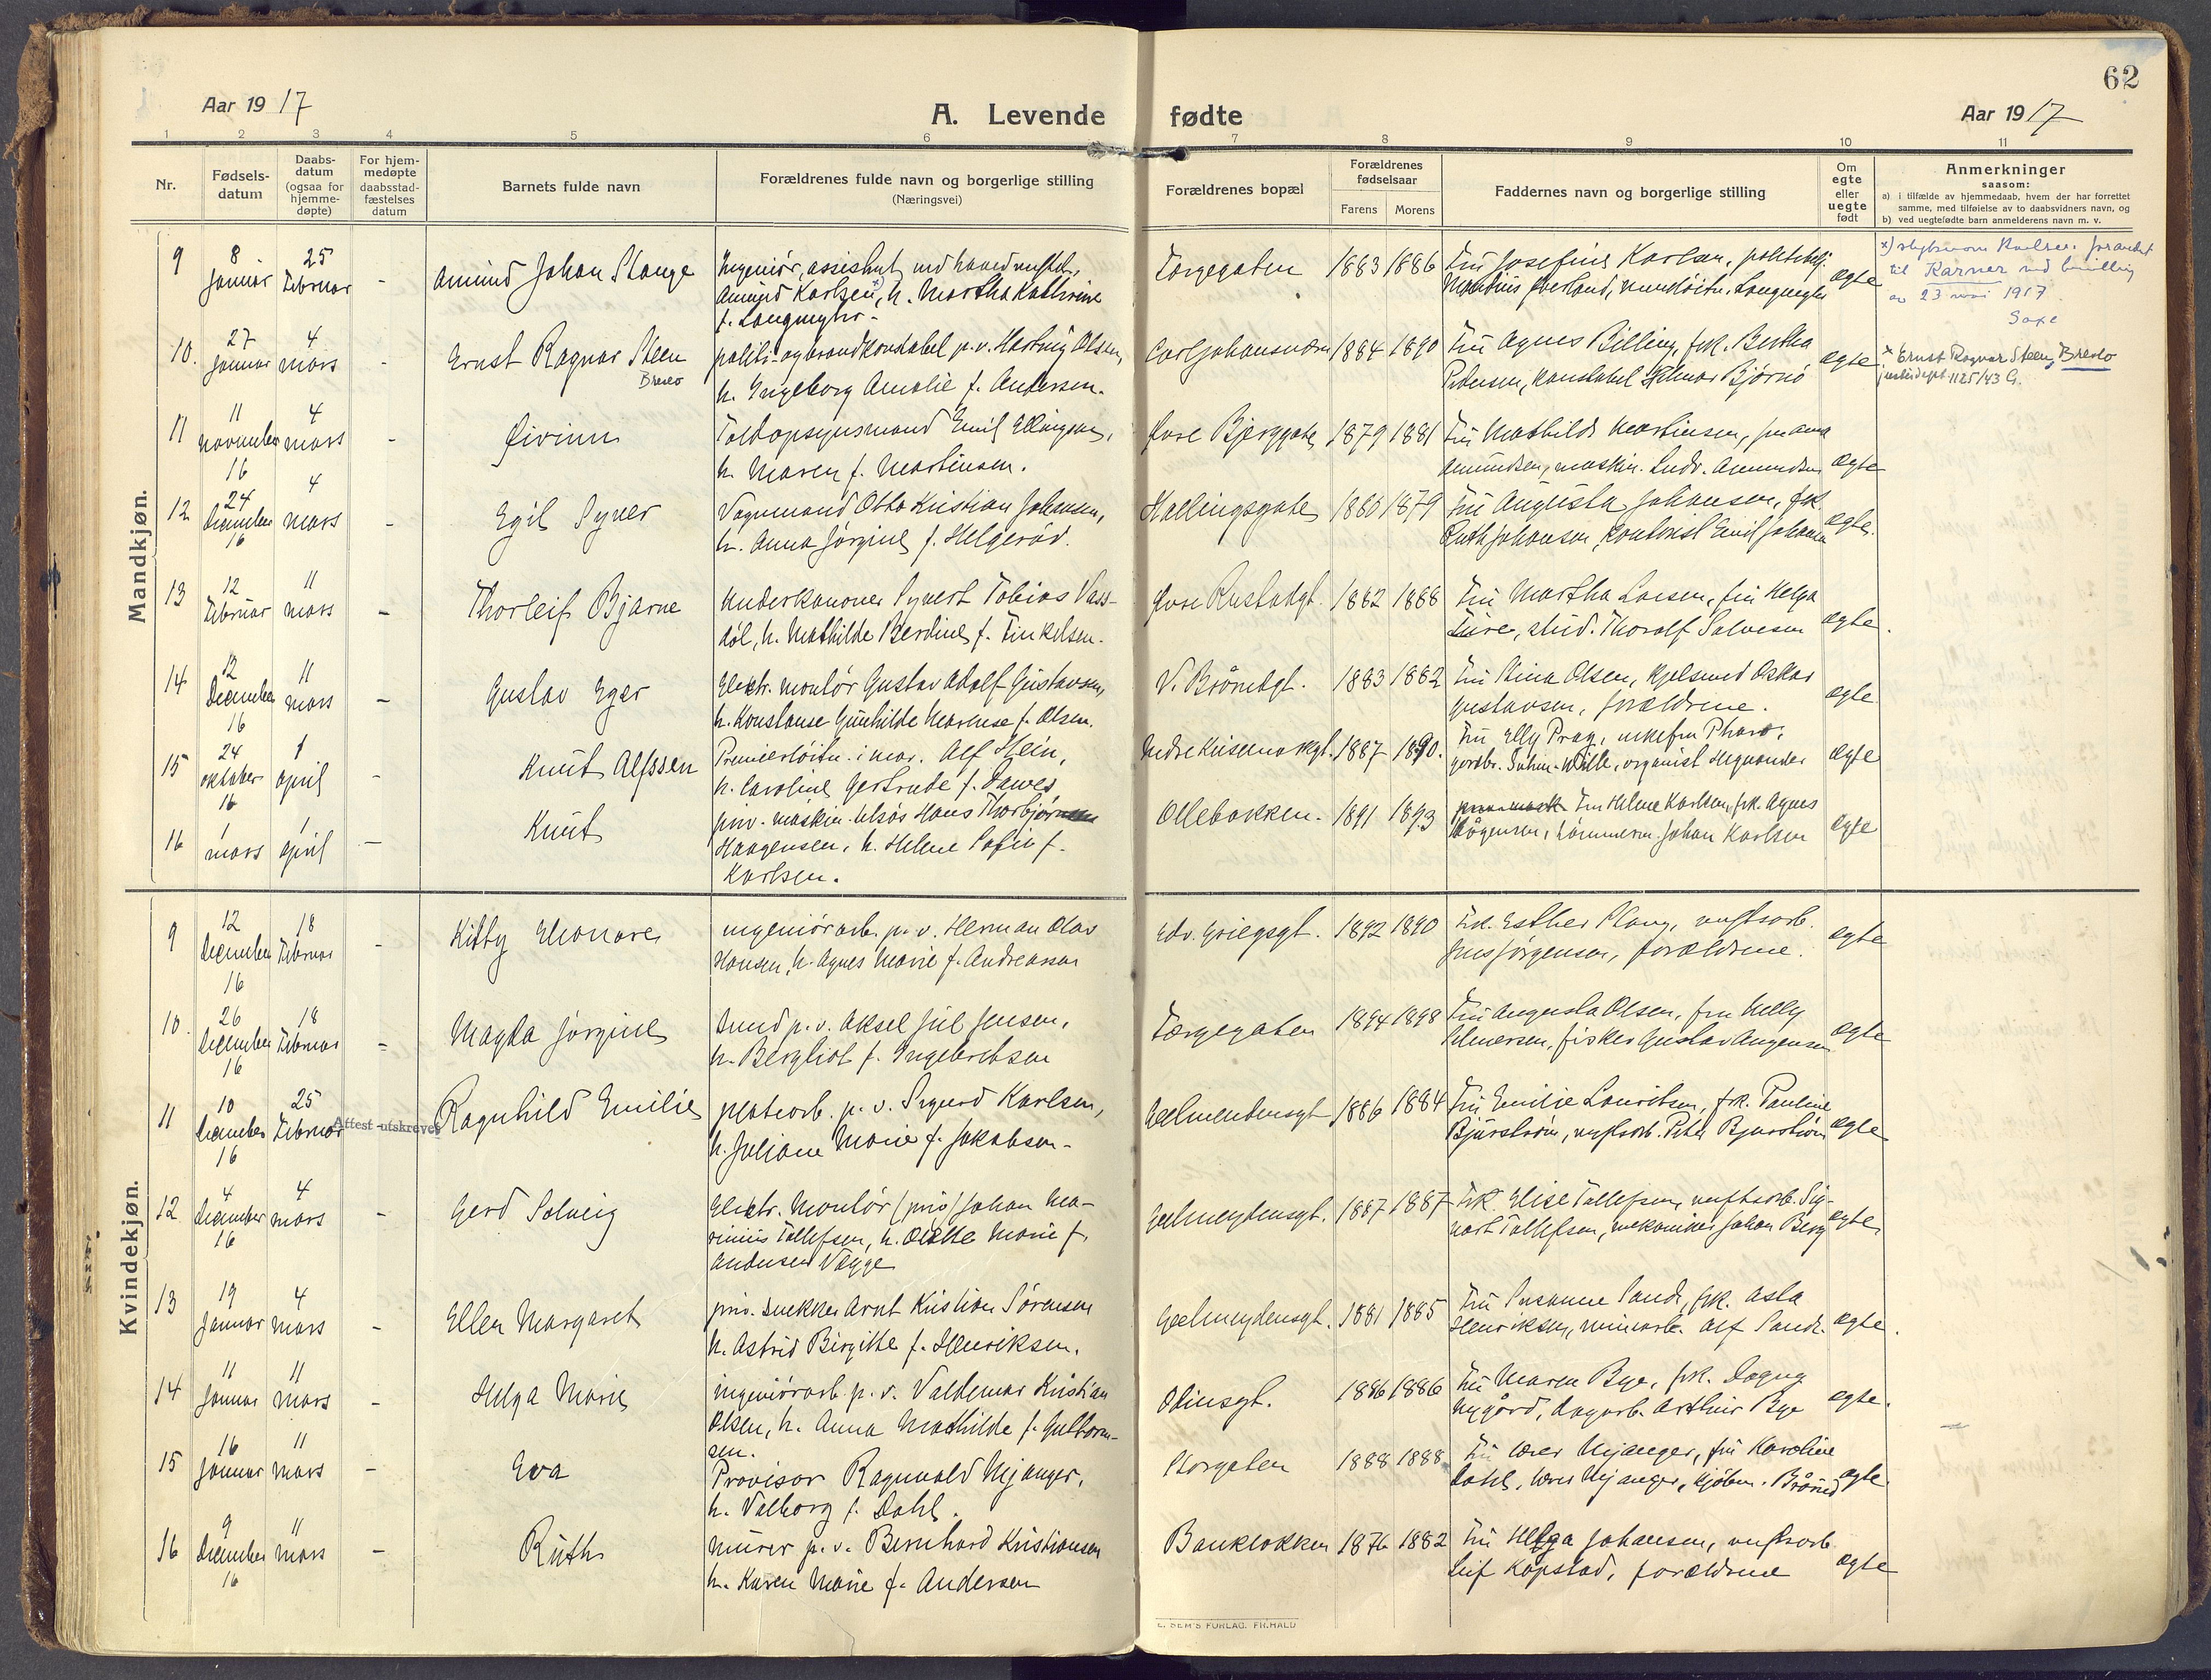 62
Aar 1917
A. Levende fødte
Aar 1917
1 2 3 4 5 6 7 8 9 10 11
Nr.
Fødsels-
datum
Daabs-
datum
(ogsaa for
hjemme-
døpte)
For hjem-
medøpte
daabsstad-
fæstelses
datum
Barnets fulde navn
Forældrenes fulde navn og borgerlige stilling
(Næringsvei)
Forældrenes bopæl
Forældrenes
fødselsaar
Farens Morens
Faddernes navn og borgerlige stilling
Om
egte
eller
uegte
født
Anmerkninger
saasom:
a) i tilfælde av hjemmedaab, hvem der har forrettet
samme, med tilføielse av to daabsvidners navn, og
b) ved uegtefødte barn anmelderens navn m. v.
Mandkjøn.
9
8 Januar
25 Februar
-
Amund Johan Stange
Ingeniør, assistent ved hovedverftet,
Amund Karlsen x), h. Martha Kathrine
f. Langmyhr-
Torgegaten
1883 1886
Fru Josefine Karlsen, politibetj.
egte
til Karner ved bevilling
av 23 mai 1917.
10.
27 Januar
4 mars
-
Ernst Ragnar Steen
Bredo
politi- og brandkonstabel p.v. Hartvig Olsen,
h. Ingeborg Amalie f. Andersen.
Carl Johansværn
1884 1890
Fru Agnes Billing, frk. Bertha
Petersen, konstabel Hilmar Bjørnø
egte
x Ernst Ragnar Steen Bredo
justisdept. 1125/43 G.
11
11 november 16
4 mars
-
Øivinn
Toldopsynsmand Emil Ellingsen,
h. Maren f. Martinsen.
Øvre Bjerggate
1879 1881
Fru Mathilde Martinsen, fru Anna
Amundsen, maskin. Ludv. Amundsen
egte
12
24 December 16
4 mars
-
Egil Syver
Vognmand Otto Kristian Johansen,
h. Anna Jørgine f. Helgerød.
Hallingsgate
1880 1879
Fru Augusta Johansen, frk.
Ruth Johansen, kontorist Emil Johansen
egte.
13
12 Februar
11 mars
-
Thorleif Bjarne
Underkanoner Syvert Tobias Vass-
døl, h. Mathilde Berdine f. Finkelsen.
Øvre Rustadgt.
1882 1888
Fru Martha Larsen, fru Helga
Ture, stud. Thoralf Salvesen
egte.
14
12 December 16
11 mars
-
Gustav Eger
Electr. montør Gustav Adolf Gustavsen,
h. Konstanse Gunhilde Marense f. Olsen.
V. Brårudgt.
1883 1882
Fru Stina Olsen, kjelsmed Oskar
Gustavsen, forældrene.
egte
15
24 oktober 16
1 april
-
Knut Alfssen
Premierløitn. i mar. Alf Stein,
h. Caroline Gertrude f. Dawes
1887 1890.
egte
16
1 mars
1 april
-
Knut
priv. maskin. tilsås Hans Thorbjørnsen
Haagensen, h. Helene Sofie f.
Karlsen.
Ollebakken.
1891 1893
Fru Helene Karlsen, frk. Agnes
Hågensen, tømmerm. Johan Karlsen
egte
Kvindekjøn.
9
12 December 16
18 Februar
-
Kitty Eleonore
ingeniørarb. p. v. Herman Olav
Hansen, h. Agnes Marie f. Andreassen
Edv. Griegsgt.
1892 1890
Frk. Esther Plang, verftsarb.
Jens Jørgensen, forældrene.
egte
10.
26 December 16
18 Februar
-
Magda Jørgine
Smed p. v. Aksel Jul Jensen,
h. Bergliot f. Ingebretsen
Torgegaten
1894 1898
Fru Augusta Olsen, fru Nelly
Helmersen, fisker Gustav Augensen
egte
11
10 December 16
25 Februar
Attest utskrevet
Ragnhild Emilie
platearb. p. v. Sigurd Karlsen,
h. Juliane Marie f. Jakobsen-
Geelmeudensgt
1886 1884
Fru Emilie Lauritsen, frk. Pauline
Bjurstrøm, verftsarb. Peter Bjurstrøm
egte
12
4 December 16
4 mars
-
Gerd Solveig
Electr. Montør (priv) Johan Ma-
rinius Tollefsen, h. Olette Marie f.
Andersen Vegge
Geelmeydensgt.
1887 1887
Frk. Elise Tollefsen, verftsarb. Sig-
vart Tollefsen, mekaniker Johan Berg
egte
13
19 Januar
4 mars
-
Ellen Margaret
priv. snekker Arnt Kristian Sørensen
h. Astrid Birgitte f. Henriksen.
Geelmeydensgt.
1881 1885
Fru Susanne Sand, frk. Asta
Henriksen, minearb. Alf Sand.
egte.
14
11 Januar
11 mars
-
Helga Marie
ingeniørarb. p. v. Valdemar Kristian
Olsen, h. Anna Mathilde f. Gulbran-
sen.
Odinsgt.
1886 1886
Fru Maren Bye, frk. Dagny
Nygård, dagarb. Arthur Bye
egte.
15
16 Januar
11 mars
-
Eva
Provisor Ragnvald Mjanger,
h. Valborg f. Dahl.
Storgaten
1888 1888
Fru lærer Mjanger, fru Karoline
Dahl, lærer Mjanger, kjøbm. Brårud
egte
16
9 December 16
11 mars
-
Ruth
murer p. v. Bernhard Kristiansen
h. Karen Marie f. Andersen
Bankløkken
1876 1882
Fru Helga Johansen, verftsarb
Leif Kopstad, forældrene
egte
E. SEM'S FORLAG. FR.HALD